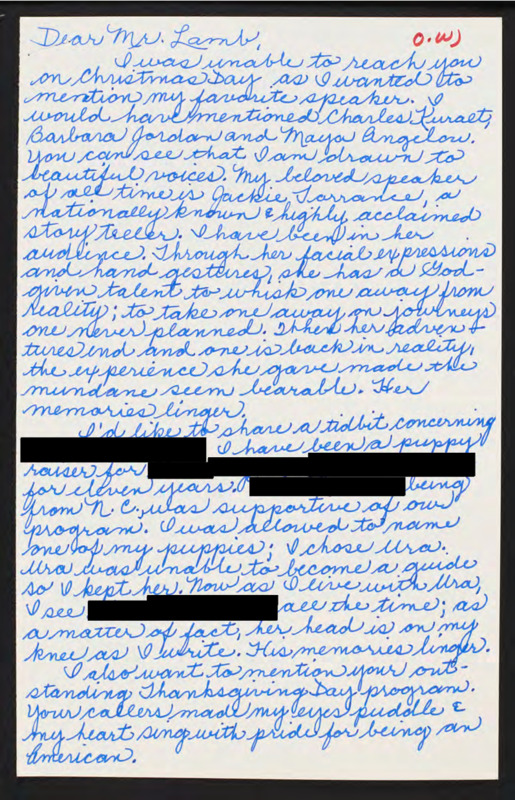 Dear Mr. Lamb, O.W)
I was unable to reach you
on Christmas Day as I wanted to
mention my favorite speaker. I
would have mentioned Charles Kuralt,
Barbara Jordan and Maya Angelou.
You can see that I am drawn to
beautiful voices. My beloved speaker
of all time is Jackie Torrance, a
nationally known & highly acclaimed
story teller. I have been in her
audience. Through her facial expressions
and hand gestures, she has a God-
given talent to whisk one away from
reality; to take one away on journeys
one never planned. When her adven-
tures end and one is back in reality,
the experience she gave made the
mundane seem bearable. Her
memories linger.
I'd like to share a tidbit concerning
I have been a puppy
raiser for
for eleven years. being
from N.C., was supportive of our
program. I was allowed to name
one of my puppies; I chose Ura.
Ura was unable to become a guide
so I kept her. Now as I live with Ura,
I see all the time; as
a matter of fact, her head is on my
knee as I write. His memories linger.
I also want to mention your out-
standing Thanksgiving Day program.
Your callers made my eyes puddle &
my heart sing with pride for being an
American.